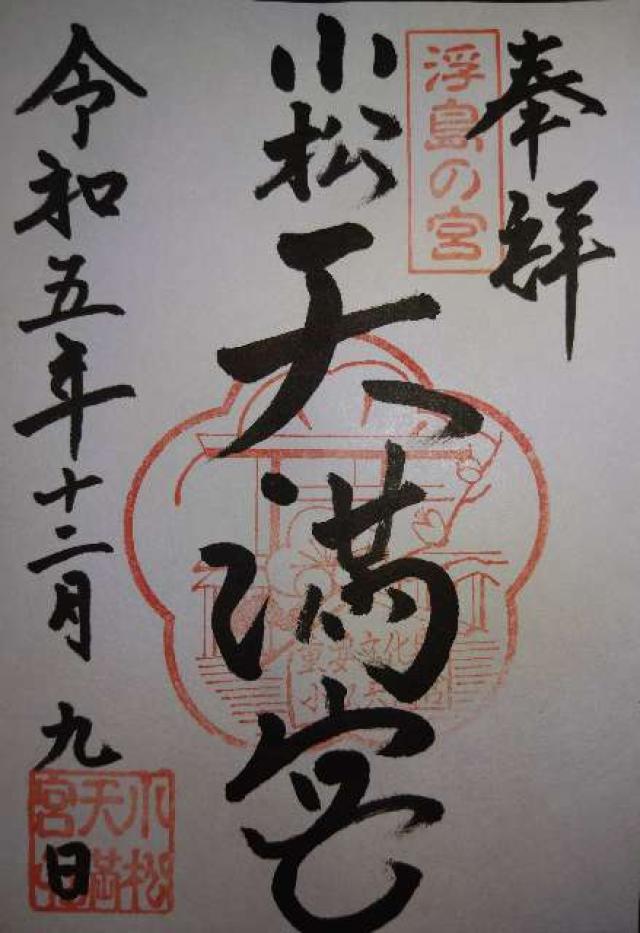 奉拝
浮島の宮
小松天満宮
重要文化財
令和五年十二月九日
小松
天満
宮